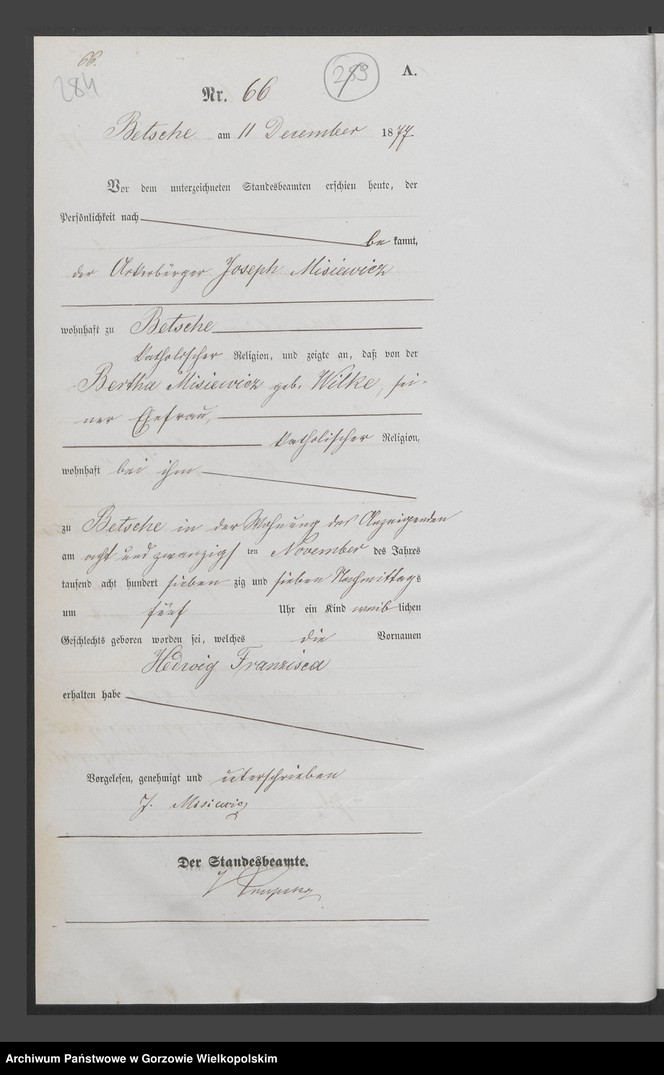 66.
284
289
A.
Nr. 66
Betsche am 11 December 1877
Vor dem unterzeichneten Standesbeamten erschien heute, der
Persönlichkeit nach
be kannt,
der Ackerbürger Joseph Misiewicz
wohnhaft zu Betsche
katholischer Religion, und zeigte an, daß von der
Bertha Misiewicz geb. Wilke, sei-
ner Ehefrau,
katholischer Religion,
wohnhaft bei ihm
zu Betsche in der Wohnung des Anzeigenden
am acht und zwanzigs ten November des Jahres
tausend acht hundert sieben zig und sieben Nachmittags
um fünf Uhr ein Kind weib lichen
Geschlechts geboren worden sei, welches die Vornamen
Hedwig Franzisca
erhalten habe
Vorgelesen, genehmigt und unterschrieben
J. Misiewicz
Der Standesbeamte.
Archiwum Państwowe w Gorzowie Wielkopolskim